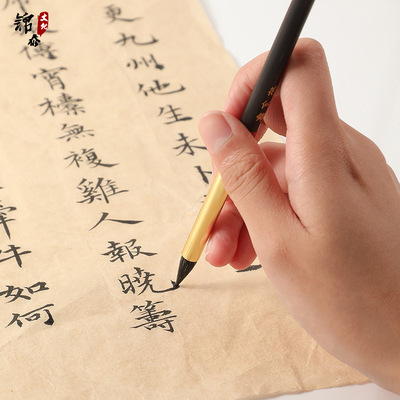 更九州他生未卜
傳宵無複雞人報曉籌
牽牛如何
文化